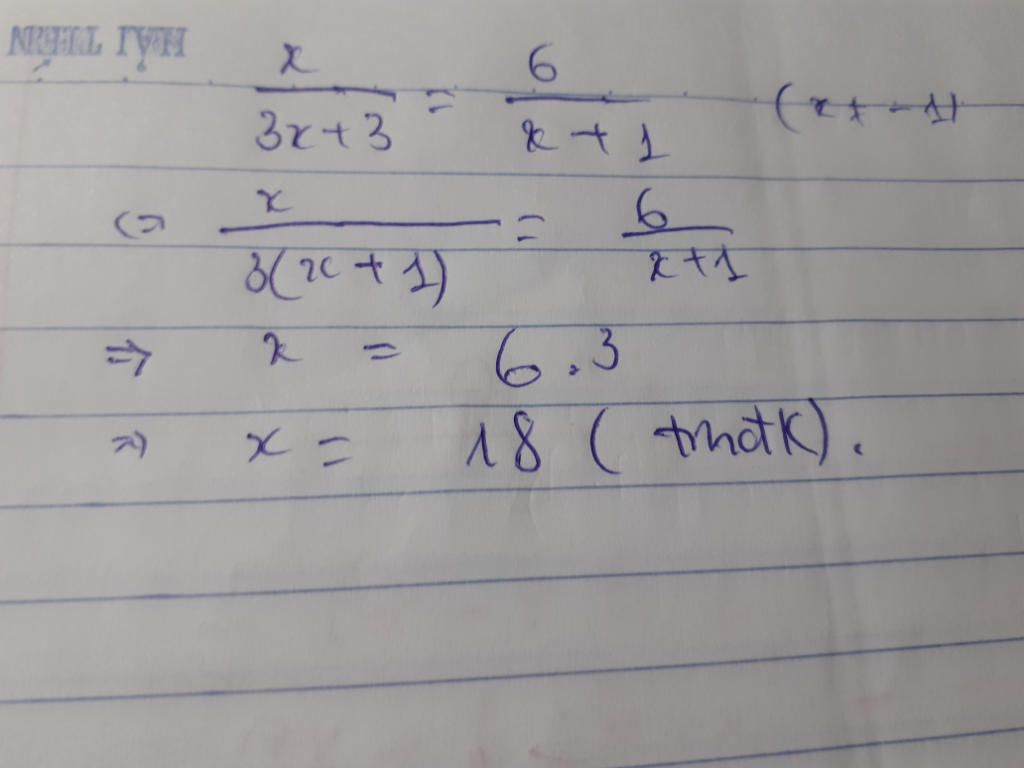 HẢI TIẾN
x/(3x+3) = 6/(x+1) (x ≠ -1)
<=> x/(3(x+1)) = 6/(x+1)
=> x = 6.3
=> x = 18 (tmđtk).